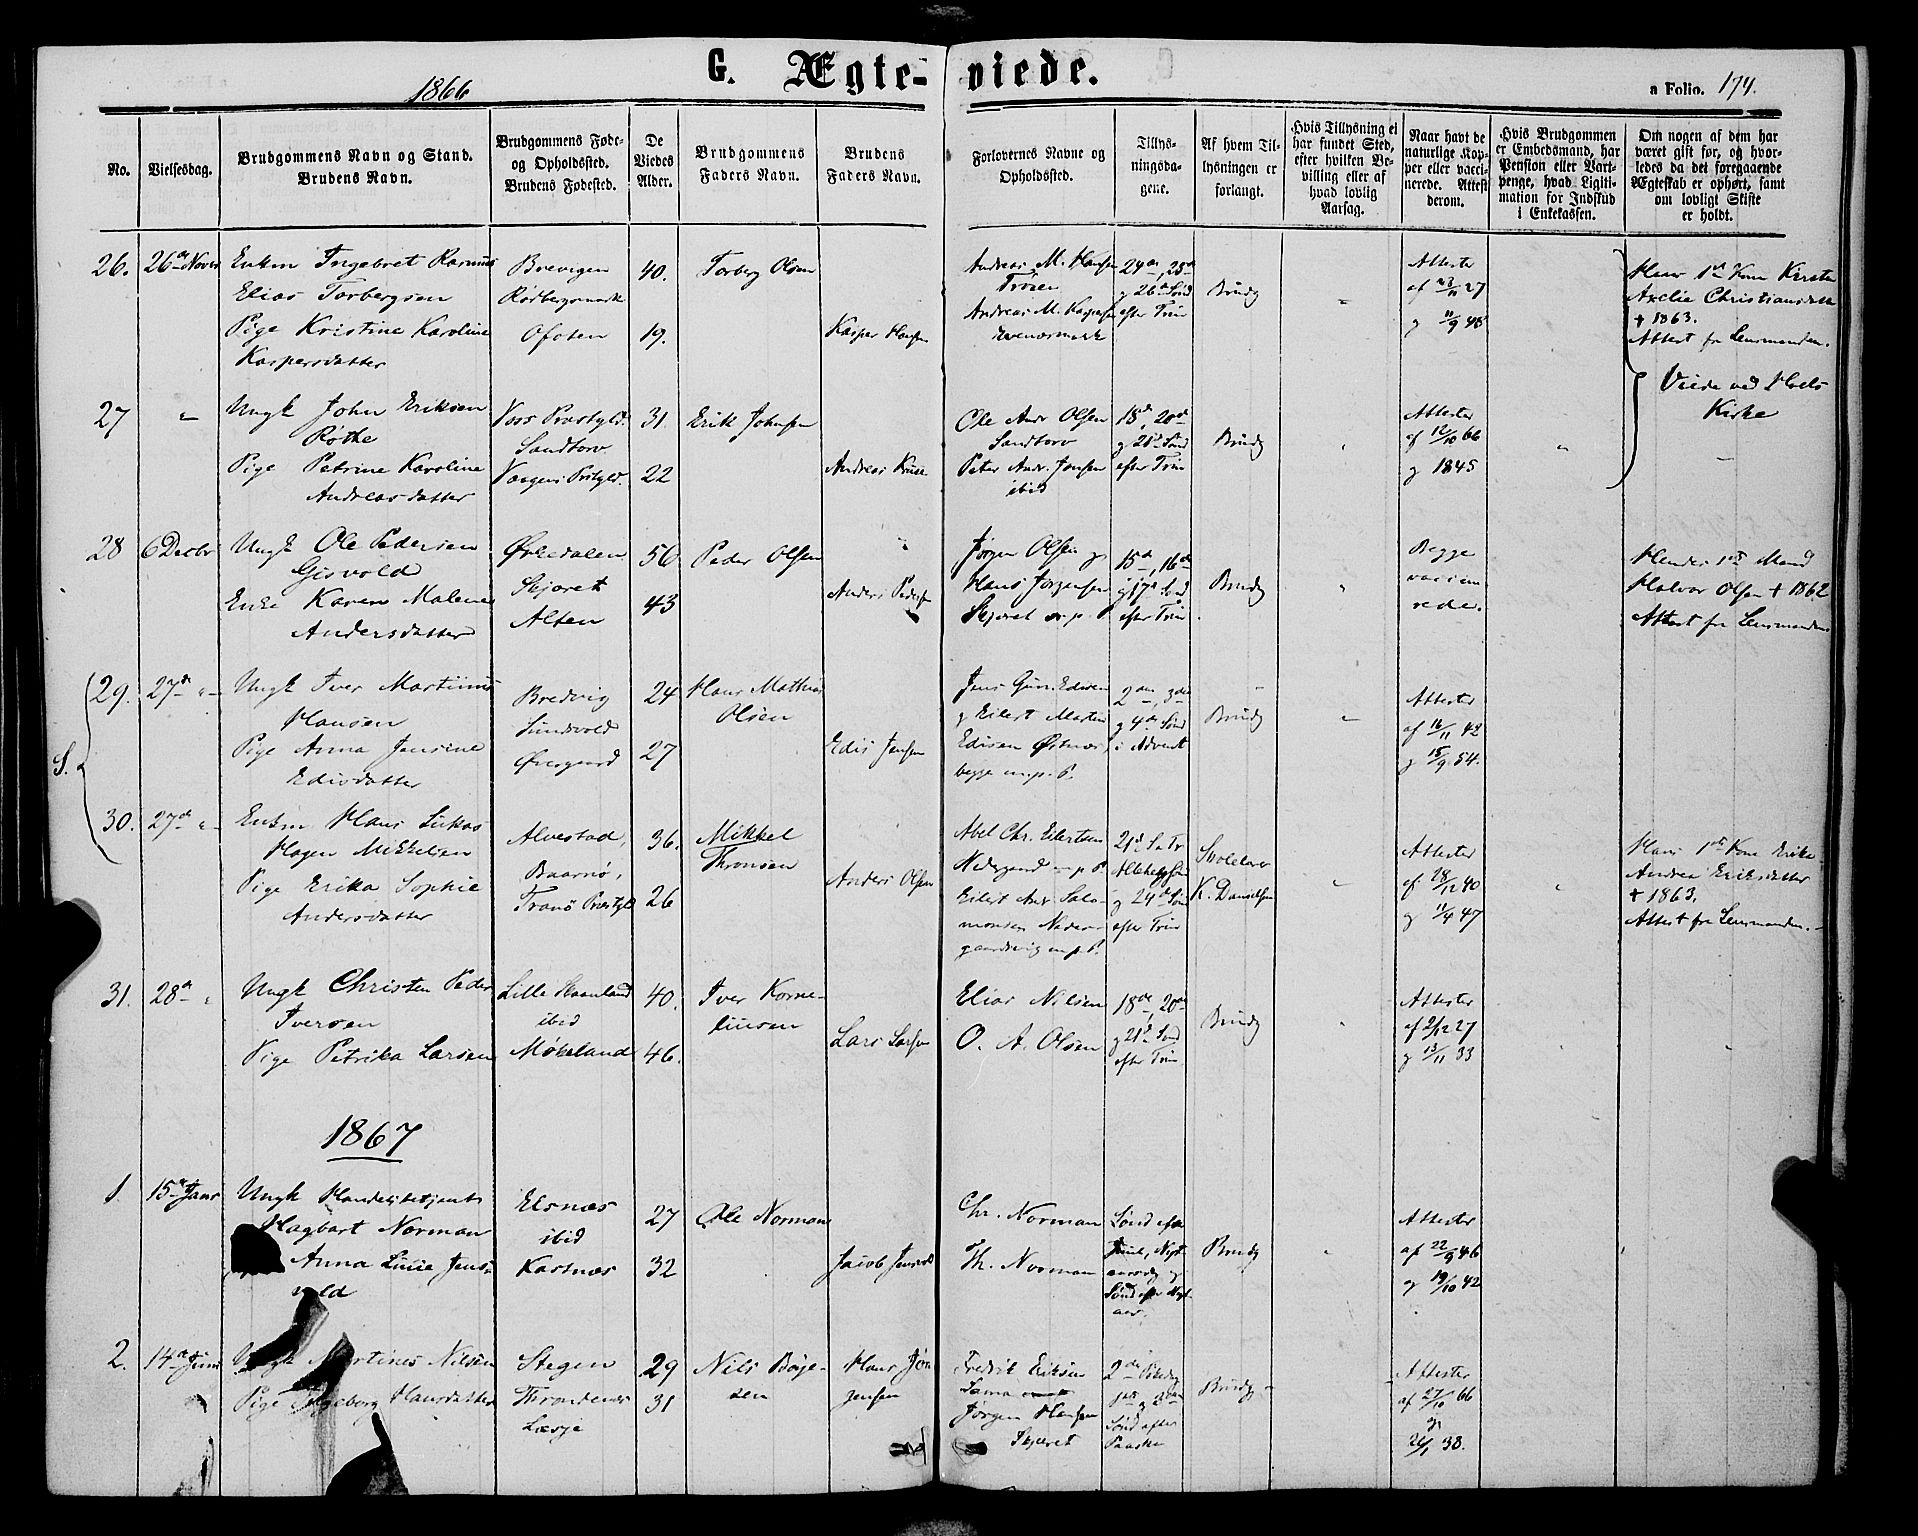 1866
G. Ægte-viede.
a Folio. 174.
No.
Vielsesdag.
Brudgommens Navn og Stand.
Brudens Navn.
Brudgommens Føde-
og Opholdssted.
Brudens Fødested.
De
Viedes
Alder.
Brudgommens
Faders Navn.
Brudens
Faders Navn.
Forlovernes Navne og
Opholdssted.
Tillys-
ningsda-
gene.
Af hvem Til-
lysningen er
forlangt.
Hvis Tillysning ei
har fundet Sted,
efter hvilken Be-
villing eller af
hvad lovlig
Aarsag.
Naar havt de
naturlige Kop-
per eller vacci-
nerede. Attest
derom.
Hvis Brudgommen
er Embedsmand, har
Pension eller Vart-
penge, hvad Ligiti-
mation for Indskud
i Enkekassen.
Om nogen af dem har
været gift før, og hvor-
ledes da det foregaaende
Ægteskab er ophørt, samt
om lovligt Skifte
er holdt.
26.
26de Novbr
Enkm Ingebret Rasmus
Elias Torbergsen
Pige Kristine Karoline
Kaspersdatter
Brevigen
Rødbergsmark
Ofoten
40.
19.
Torberg Olsen
Kasper Hansen
Andreas M. Hansen
Andreas M. Kaspersen
24de, 25de
g 26de Sønd
efter Trin
Brudg
Attester
af 27
g 11/9 48
Hans 1ste Kone Kirsten
Axelie Christiansdatter
+ 1863.
Attest fr Lensmanden.
27
Ungk John Eriksen
Røthe
Pige Petrine Karoline
Andreasdatter
Voss Præstgld.
Sandtorv
31.
22
Erik Johnsen
Andreas Kruse
Ole Andr Olsen
Sandtorv
Peter Andr. Jensen
ibid
18de, 20de
g 21de Sønd
efter Trin
Brudg
Attester
af 12/10 66
g 1845
Viede ved Hols
Kirke
28
6 Decbr
Ungk Ole Pedersen
Gisvold
Enke Karen Malene
Andersdatter
Ørkedalen
Skjæret
Alten
50
43
Peder Olsen
Anders Pedersen
Jørgen Olsen g
Hans Jørgensen
Skjæret m. p. P
15de, 16de
g 17de Sønd
efter Trin
Brudg
Begge
vacine
rede.
Hendes 1ste Mand
Halvor Olsen + 1862
Attest fr Lensmanden
29.
27de
S.
Ungk Iver Martinus
Hansen
Pige Anna Jensine
Edisdatter
Bredvig
Sundvold
Øvergaard
24
27
Hans Mathias
Olsen
Edis Jensen
Jens Edisen
g Eilert Martin
Edisen Østnæs
begge m. p. P.
2den, 3de
g 4de Sønd
i Advent
Brudg
Attester
af 16/11 42
g 15/9 54.
30.
27de
Enkm Hans Lukas
Hagen Mikkelsen
Pige Erika Sophie
Andersdatter
Alvestad,
Baarnø,
Tranø Præstgld
36.
26
Mikkel
Thronsen
Anders Olsen
Abel Chr. Eilertsen
Nedregaard m p P.
Eilert Andr Salo-
monsen Neder-
gaardsvig m p. P.
21de S e Tr
Allehelgen
g 24de Sønd
efter Trin
Skolelærer
K. Danielsen
Attester
af 28/12 40
g 11/4 47
Hans 1ste Kone Erika
Andrea Eriksdatter
+ 1863.
Attest fr Lensmanden.
31.
28de
Ungk Christen Peder
Iversen
Pige Petrika Larsen
Lille Haanland
ibid
Møkeland
40.
46.
Iver Korne-
liusen
Lars Larsen
Elias Nilsen
O. A. Olsen
18de, 20de
g 21de Sønd
efter Trin
Brudg
Attester
af 2/12 27
g 13/11 33
1867
1.
15de Janr
Ungk Handelsbetjent
Hagbart Norman
Anna Lucie Jens-
vold
Elsnæs
ibid
Kastnæs
27
32
Ole Norman
Jacob Jensvold
Chr. Norman
Th. Norman
Sønd efter
Juul, Nyt
aarsdg g
Sønd efter Nyt-
aar.
Brudg
Attester
af 22/9 46
g 19/10 42
2.
14de Juni
Ungk Martines Nilsen
Pige Ingeborg Hansdatter
Stegen
Throndenes
Læsje
29
31
Nils Børje-
sen
Hans Jør
gensen
Fredrik Eriksen
Sama
Jørgen Hansen
Skjæret
2den Paaskedg
1ste g 2den
Sønd efter
Paaske
Brudg
Attester
af 27/10 66
g
38.